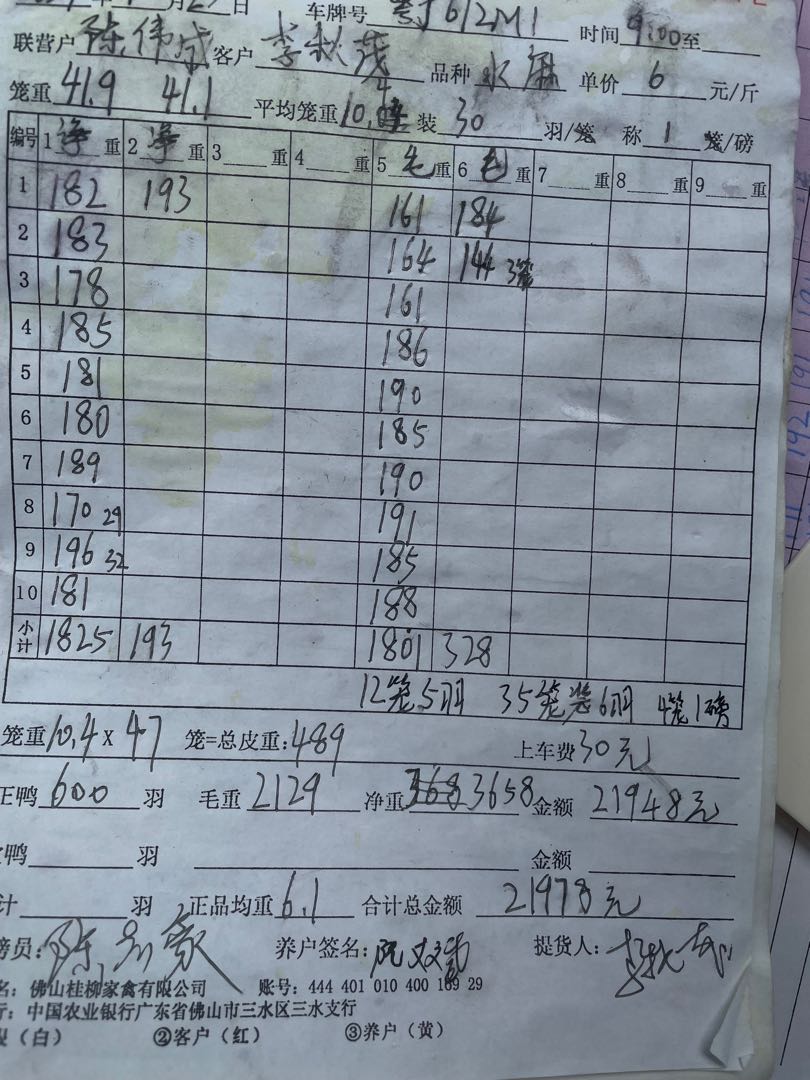 月 日 车牌号 612M1 时间 9:00至
联营户 陈伟成 客户 李秋茂 品种 水麻 单价 6 元/斤
笼重 41.9 41.1 平均笼重 10.4 装 30 羽/笼 称 1 笼/磅
编号 1 净 重 2 净 重 3 重 4 重 5 毛 重 6 毛 重 7 重 8 重 9 重
1 182 193 161 184
2 183 164 144 3笼
3 178 161
4 185 186
5 181 190
6 180 185
7 189 190
8 170 29 191
9 196 32 185
10 181 188
小计 1825 193 1801 328
12笼5羽 35笼装6羽 4笼1磅
笼重 10.4 x 47 笼=总皮重: 489 上车费 30元
正鸭 600 羽 毛重 2129 净重 3658 金额 21948元
鸭 羽 金额
计 羽 正品均重 6.1 合计总金额 21978元
磅员: 陈 养户签名: 提货人: 李秋茂
名: 佛山桂柳家禽有限公司 账号: 444 401 010 400 169 29
行: 中国农业银行广东省佛山市三水区三水支行
(白) ②客户(红) ③养户(黄)